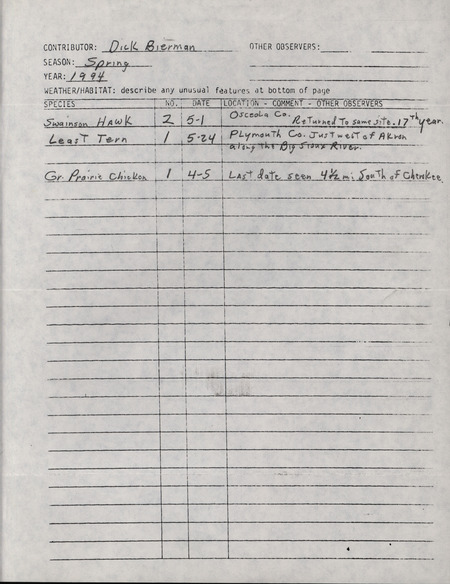 CONTRIBUTOR: Dick Bierman OTHER OBSERVERS:
SEASON: Spring
YEAR: 1994
WEATHER/HABITAT: describe any unusual features at bottom of page
SPECIES NO. DATE LOCATION - COMMENT - OTHER OBSERVERS
Swainson Hawk 2 5-1 Osceola Co. Returned to same site. 17th year.
Least Tern 1 5-24 Plymouth Co. Just west of Akron
along the Big Sioux River.
Gr. Prairie Chicken 1 4-5 Last date seen 4 1/2 mi. South of Cherokee.